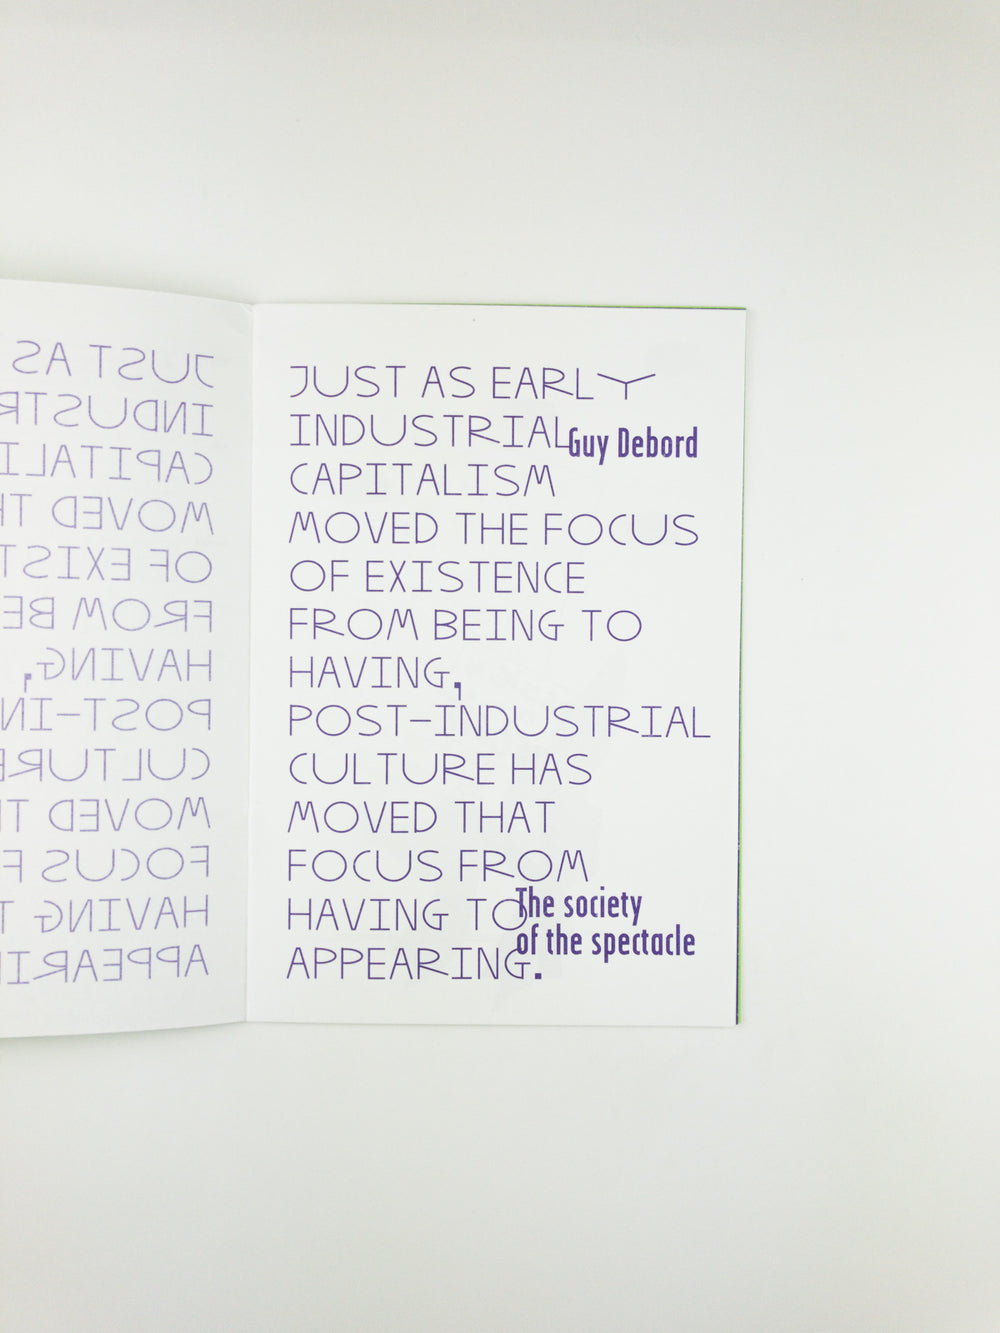 JUST AS
INDUSTR
CAPITALI
MOVED TH
OF EXIST
FROM BE
HAVING,
POST-IN
CULTURE
MOVED T
FOCUS F
HAVING T
APPEARI
JUST AS EARLY
INDUSTRIAL
Guy Debord
CAPITALISM
MOVED THE FOCUS
OF EXISTENCE
FROM BEING TO
HAVING,
POST-INDUSTRIAL
CULTURE HAS
MOVED THAT
FOCUS FROM
HAVING TO
The society
of the spectacle
APPEARING.